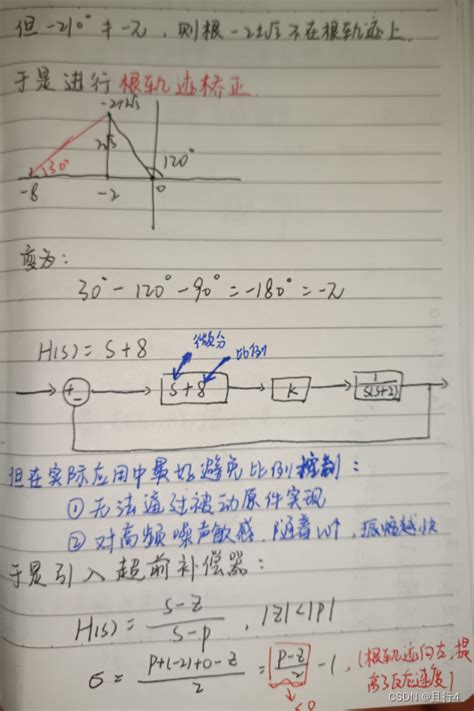 但 -210° ≠ -π, 则根 -2+2√3 不在根轨迹上.
于是进行根轨迹矫正.
-2+2√3
2√3
30°
120°
-8
-2
0
变为:
30° - 120° - 90° = -180° = -π
H(s) = S+8
微分
比例
+
-
S+8
K
1/S(S+2)
但在实际应用中最好避免比例控制:
① 无法通过被动原件实现
② 对高频噪声敏感. 随着w↑, 振幅越快
于是引入超前补偿器:
H(s) = S-Z/S-P, |Z|<|P|
σ = P+(-2)+0-Z/2 = P-Z/2 - 1. (根轨迹向左, 提
高了反应速度)
<0
CSDN @且行4